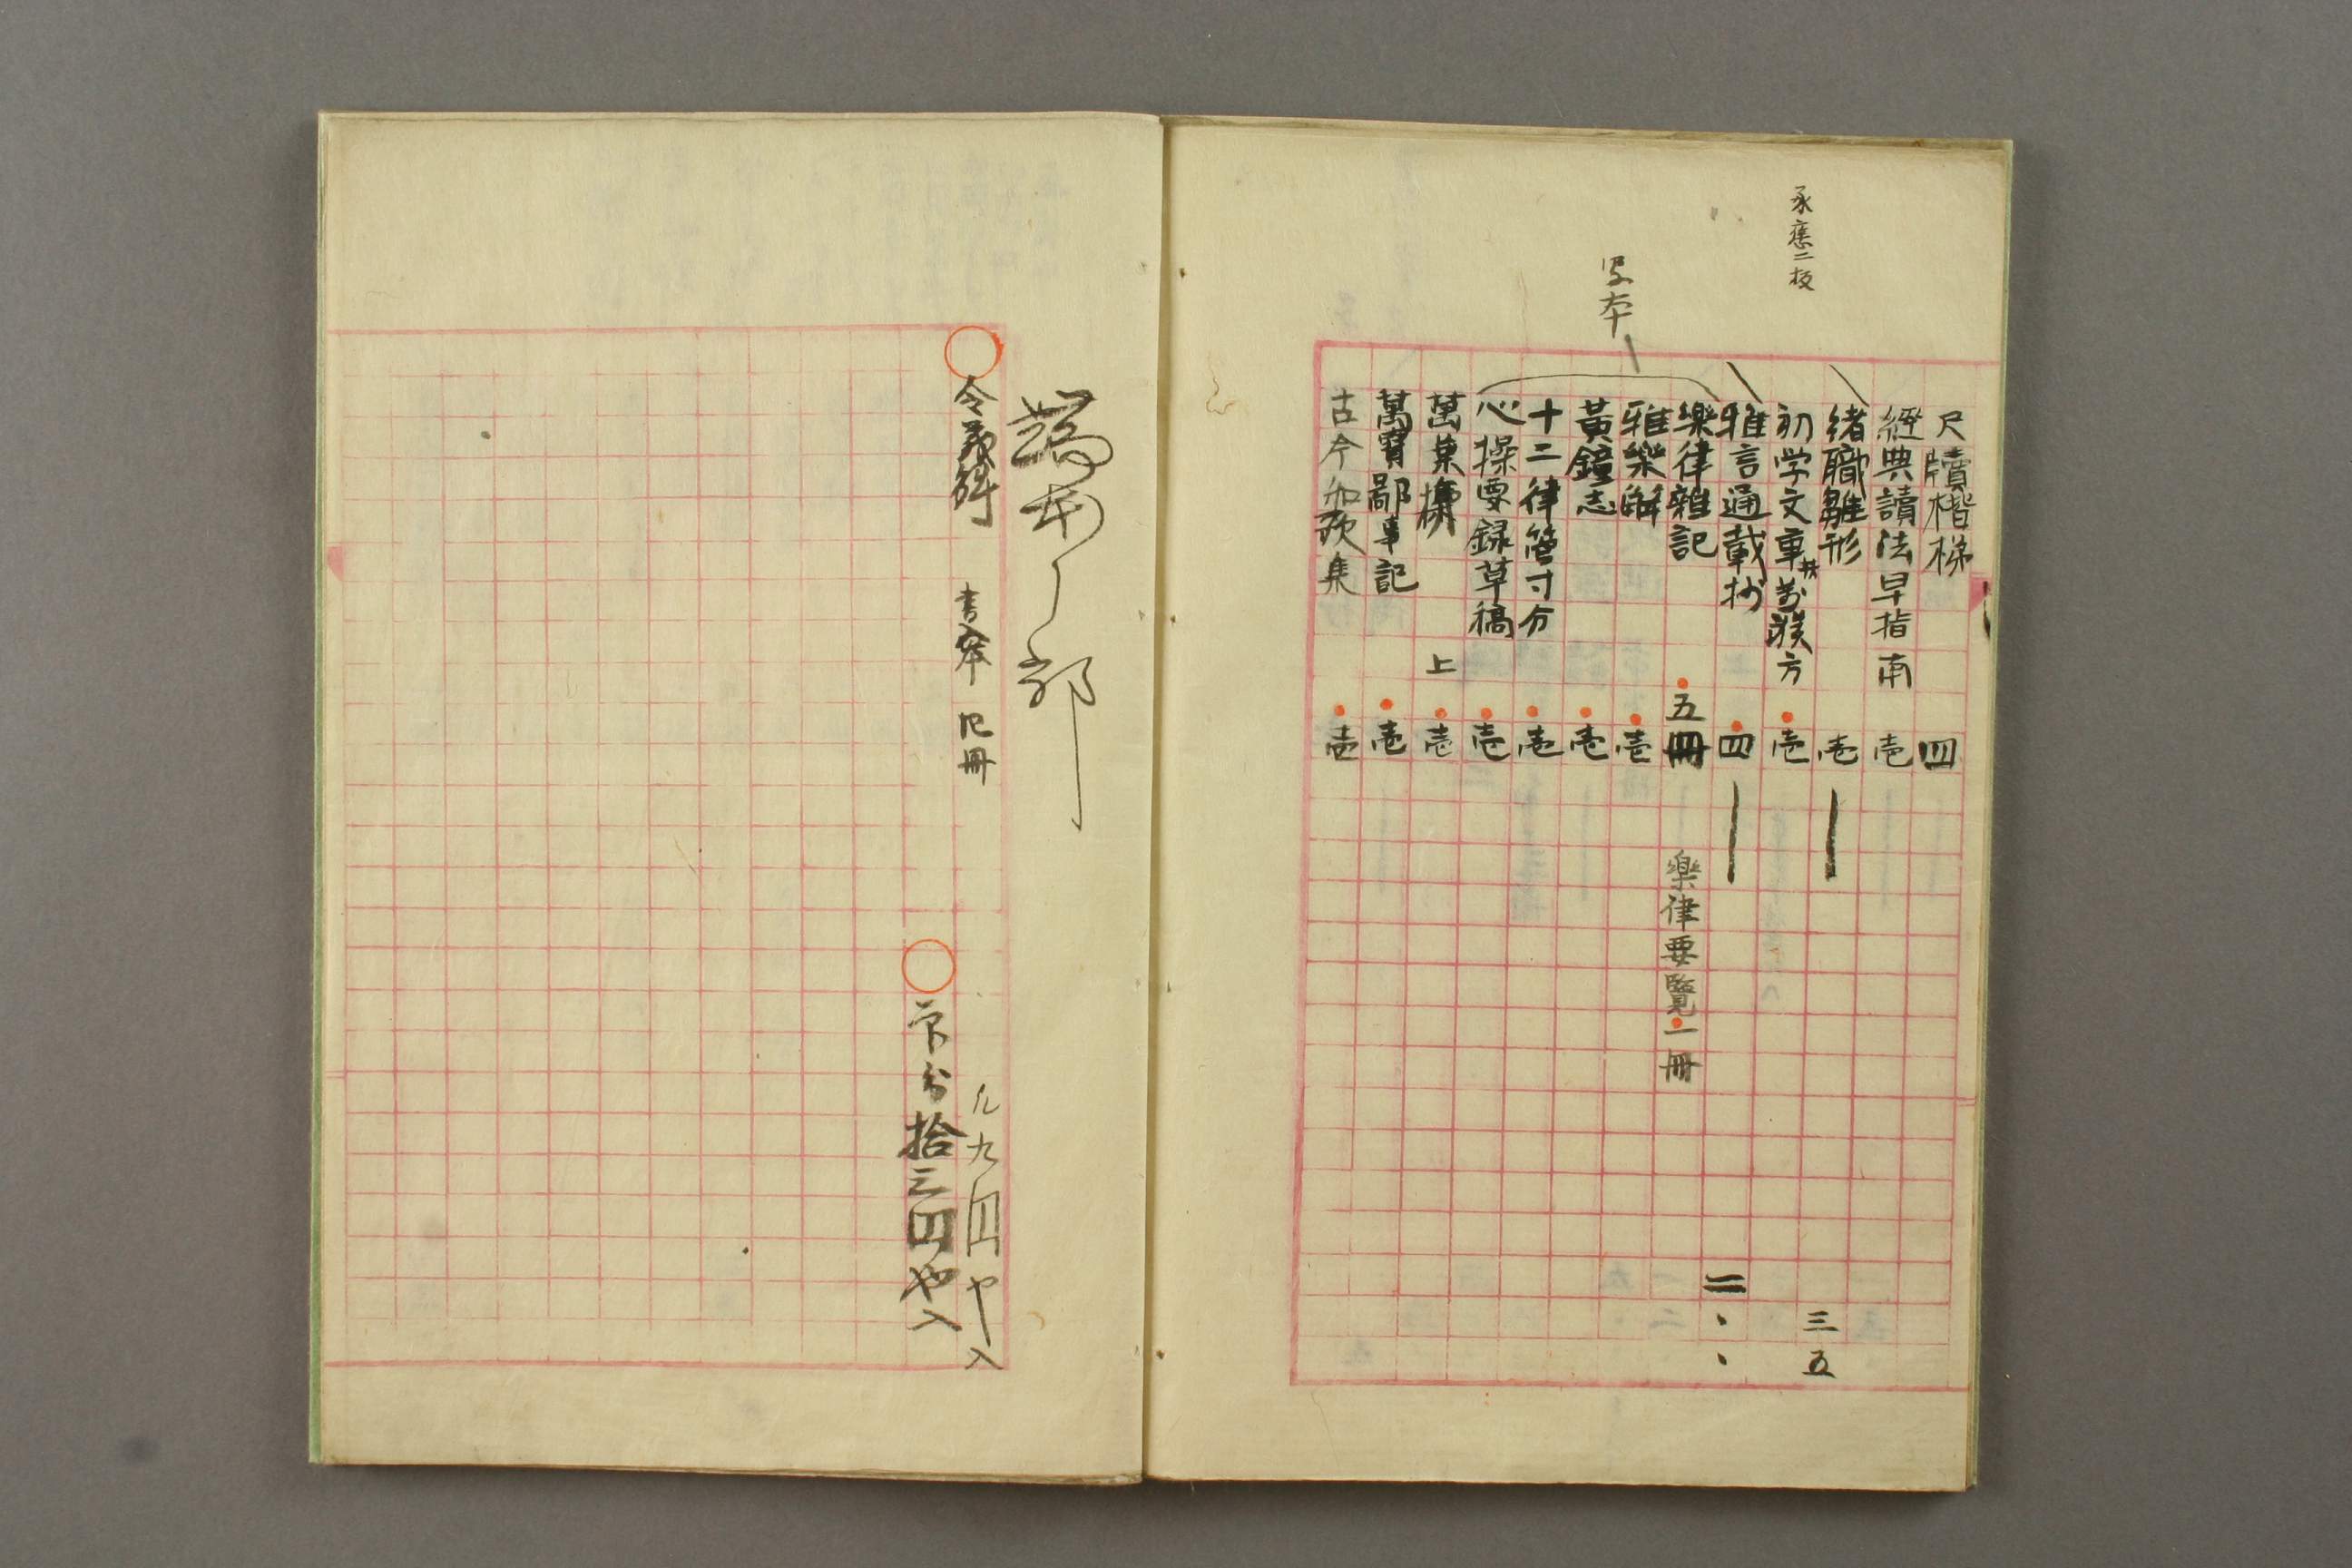 承應二板
写本
尺牘楷梯 四
經典讀法早指南 壱
緒職雛形 壱
初学文章抄萬躾方 壱
三五
雅言通載抄 四
二
樂律雜記 五冊 樂律要覽一冊
雅樂解 壱
黃鐘志 壱
十二律管寸分 壱
心操要録草稿 壱
萬葉 上 壱
萬寳鄙事記 壱
古今和歌集 壱
端本之部
令義解 書入本 四冊
九四や入
拾三四や入